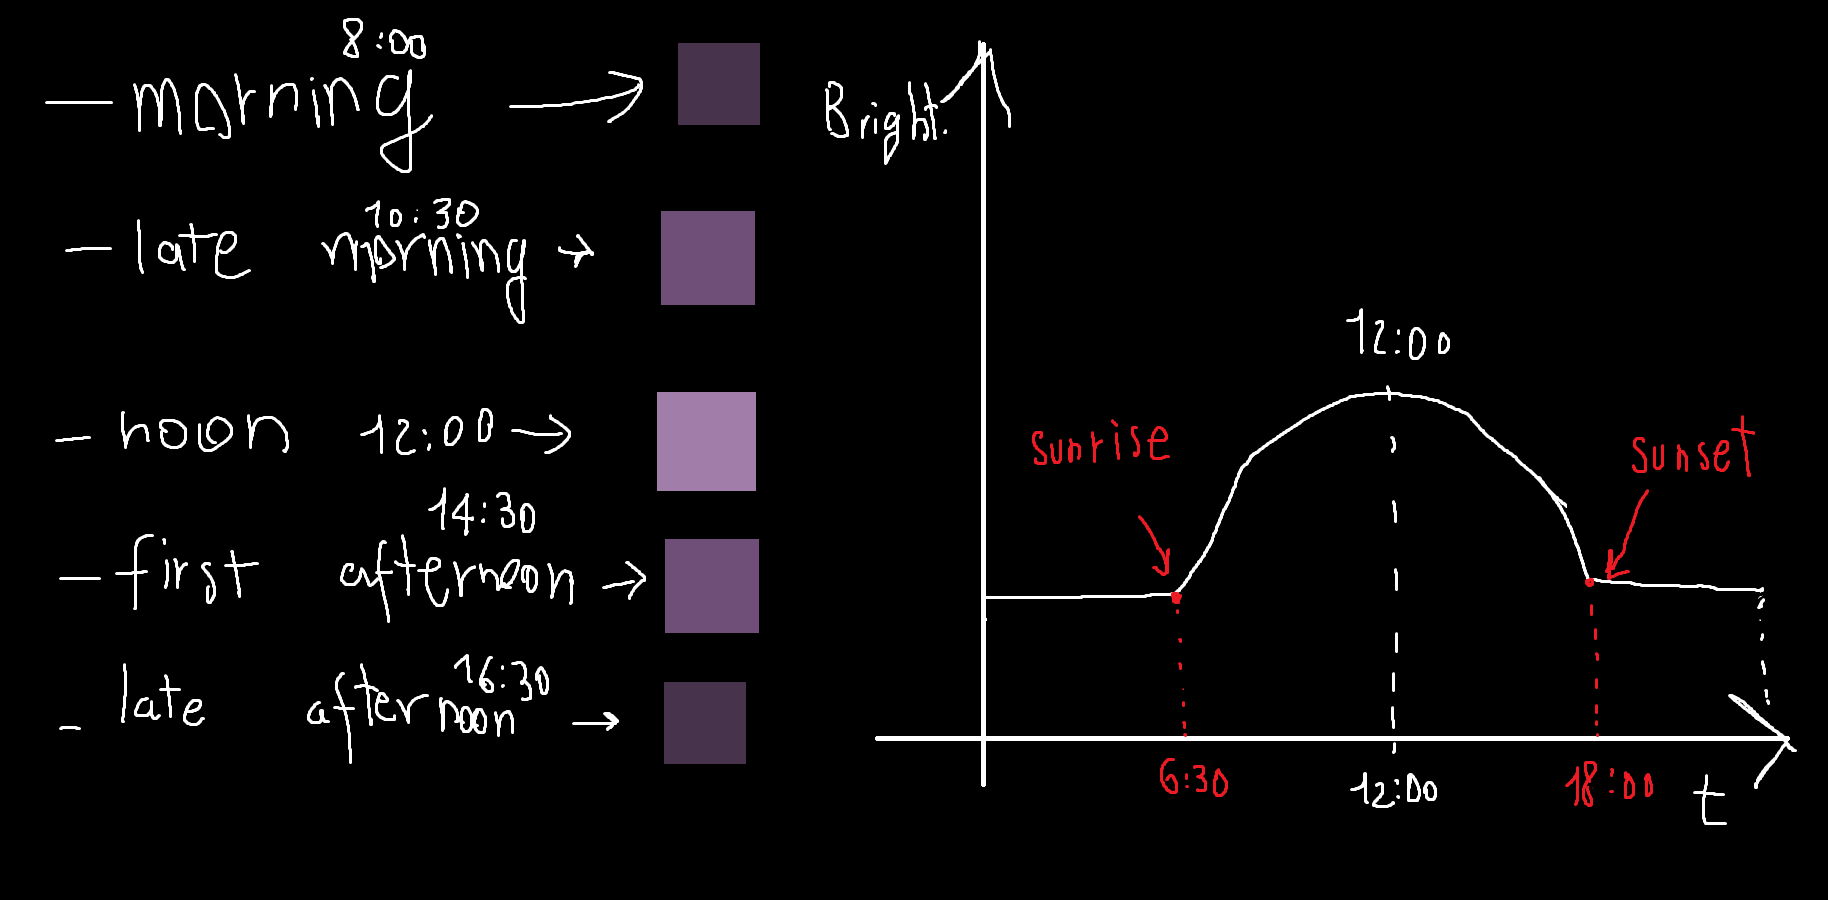 8:00
- morning →
10:30
- late morning →
- noon 12:00 →
14:30
- first afternoon →
16:30
- late afternoon →
Bright.
12:00
sunrise
sunset
6:30
12:00
18:00
t